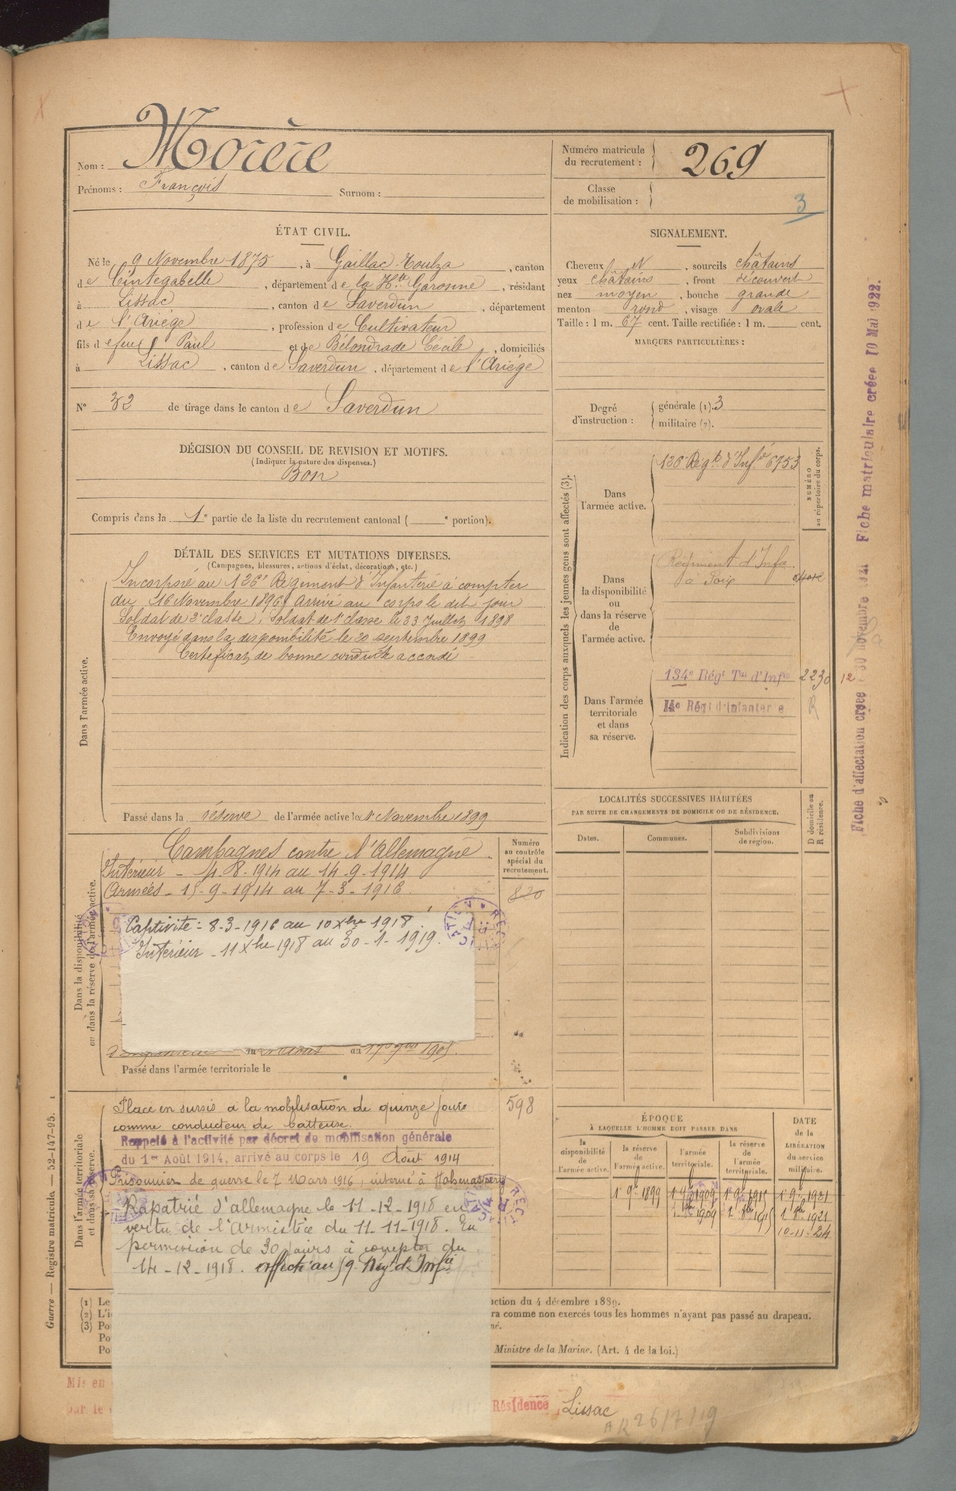 Nom : Morère
Prénoms : François Surnom :
Numéro matricule du recrutement : 269
Classe de mobilisation : 3
ÉTAT CIVIL.
Né le 9 Novembre 1875, à Gaillac-Toulza, canton
de Cintegabelle, département de la Hte Garonne, résidant
à Lissac, canton de Saverdun, département
de l'Ariège, profession de Cultivateur
fils de feu Paul et de Bélondrade Cécile, domiciliés
à Lissac, canton de Saverdun, département de l'Ariège
N° 32 de tirage dans le canton de Saverdun
SIGNALEMENT.
Cheveux et, sourcils châtains
yeux châtains, front découvert
nez moyen, bouche grande
menton rond, visage ovale
Taille : 1 m. 67 cent. Taille rectifiée : 1 m. cent.
MARQUES PARTICULIÈRES :
Degré d'instruction : générale (1). 3
militaire (2).
DÉCISION DU CONSEIL DE REVISION ET MOTIFS.
(Indiquer la nature des dispenses.)
Bon
Compris dans la 1e partie de la liste du recrutement cantonal ( e portion).
DÉTAIL DES SERVICES ET MUTATIONS DIVERSES.
(Campagnes, blessures, actions d'éclat, décorations, etc.)
Dans l'armée active.
Incorporé au 126e Régiment d'Infanterie à compter
du 16 Novembre 1896, arrivé au corps le dit jour
Soldat de 2e classe. Soldat de 1e classe le Juillet 1898
Envoyé dans la disponibilité le 20 septembre 1899
Certificat de bonne conduite accordé
Passé dans la réserve de l'armée active le 1 Novembre 1899
Indication des corps auxquels les jeunes gens sont affectés (3).
NUMÉRO au répertoire du corps.
Dans l'armée active.
126 Régt d'Infie 6753
Dans la disponibilité ou dans la réserve de l'armée active.
Régiment d'Infie
à Foix
Dans l'armée territoriale et dans sa réserve.
134e Régt Tal d'Infie 2230 12
14e Régt d'Infanterie R
Dans la disponibilité ou dans la réserve de l'armée active.
Campagnes contre l'Allemagne
Intérieur - 4.8.1914 au 14.9.1914
Armées - 15-9-1914 au 7-3-1916
Captivité : 8-3-1916 au 10 Xbre 1918
Intérieur - 11 Xbre 1918 au 30-1-1919.
Numéro au contrôle spécial du recrutement.
820
au 17 1905.
Passé dans l'armée territoriale le
LOCALITÉS SUCCESSIVES HABITÉES
PAR SUITE DE CHANGEMENTS DE DOMICILE OU DE RÉSIDENCE.
Dates. Communes. Subdivisions de région.
D domicile ou R résidence.
Dans l'armée territoriale et dans sa réserve.
Placé en sursis à la mobilisation de quinze jours
comme conducteur de batteuse.
598
Rappelé à l'activité par décret de mobilisation générale
du 1er Août 1914, arrivé au corps le 19 Août 1914
Prisonnier de guerre le 7 Mars 1916, interné à
Rapatrié d'allemagne le 11-12-1918 en
vertu de l'Armistice du 11-11-1918. En
permission de 30 jours à compter du
14-12-1918. affecté au 59 Régt d'Infie
ÉPOQUE
À LAQUELLE L'HOMME DOIT PASSER DANS
la disponibilité de l'armée active.
la réserve de l'armée active.
l'armée territoriale.
la réserve de l'armée territoriale.
DATE de la LIBÉRATION du service militaire.
1 9bre 1899 1 9bre 1909 1 9bre 1915 1 9bre 1921
1909 1915 1921
10-11-24
(1) Le
(2) L'i
(3) Po
Po
Po
ction du 4 décembre 1889.
ra comme non exercés tous les hommes n'ayant pas passé au drapeau.
né.
Ministre de la Marine. (Art. 4 de la loi.)
Mis en
par le
Résidence, Lissac
R 26/7/19
Guerre — Registre matricule. — 52-147-95.
Fiche d'affectation créée novembre 1921
Fiche matriculaire créée 10 Mai 1922.